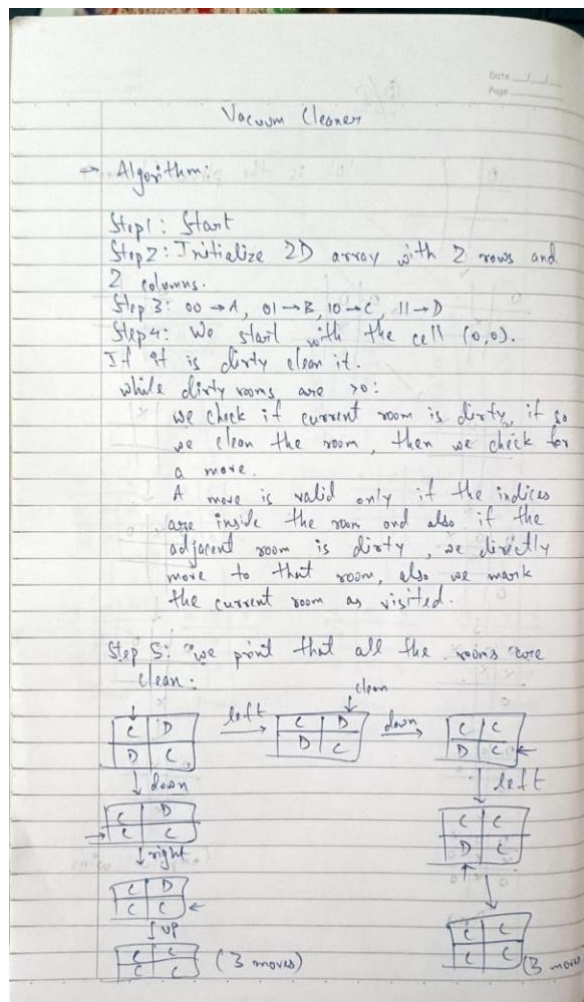 Date
Page
Vacuum Cleaner
→ Algorithm:
Step1: Start
Step2: Initialize 2D array with 2 rows and
2 columns.
Step 3: 00 → A, 01 → B, 10 → C, 11 → D
Step4: We start with the cell (0,0).
If it is dirty clean it.
while dirty rooms are >0:
we check if current room is dirty, if so
we clean the room, then we check for
a move.
A move is valid only if the indices
are inside the room and also if the
adjacent room is dirty, we directly
move to that room, also we mark
the current room as visited.
Step 5: we print that all the rooms are
clean:
clean
C D left C D down C C
D C D C D C
down left
C D C C
C C D C
right
C D
C C
up
C C (3 moves) C C (3 moves
C C C C